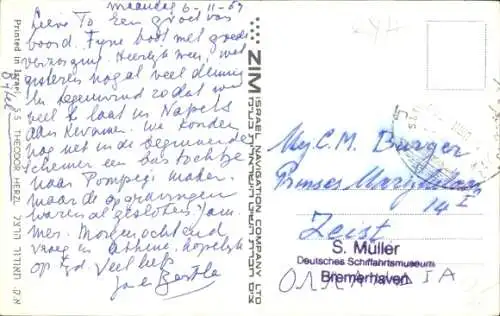 maandag 6-11-67
Lieve To Een groet van
boord. Fijne boot met goede
verzorging. Heerlijk weer, wel
gisteren nogal veel deining
en tegenwind zodat we
veel te laat in Napels
aan kwamen. We konden
nog net in de beginnende
schemer een bustochtje
naar Pompeji maken.
maar de opgravingen
waren al gesloten. Jam-
mer. Morgenochtend
vroeg in Athene. Hopelijk
op tijd. Veel liefs
Printed in Israel
S.S. THEODOR HERZL
א.ק. תאודור הרצל
ZIM ISRAEL NAVIGATION COMPANY LTD
צים חברת השיט הישראלית בע"מ
Mej. C. M. Burger
Prinses
14 I
Zeist
S. Müller
Deutsches Schiffahrtsmuseum
Bremerhaven